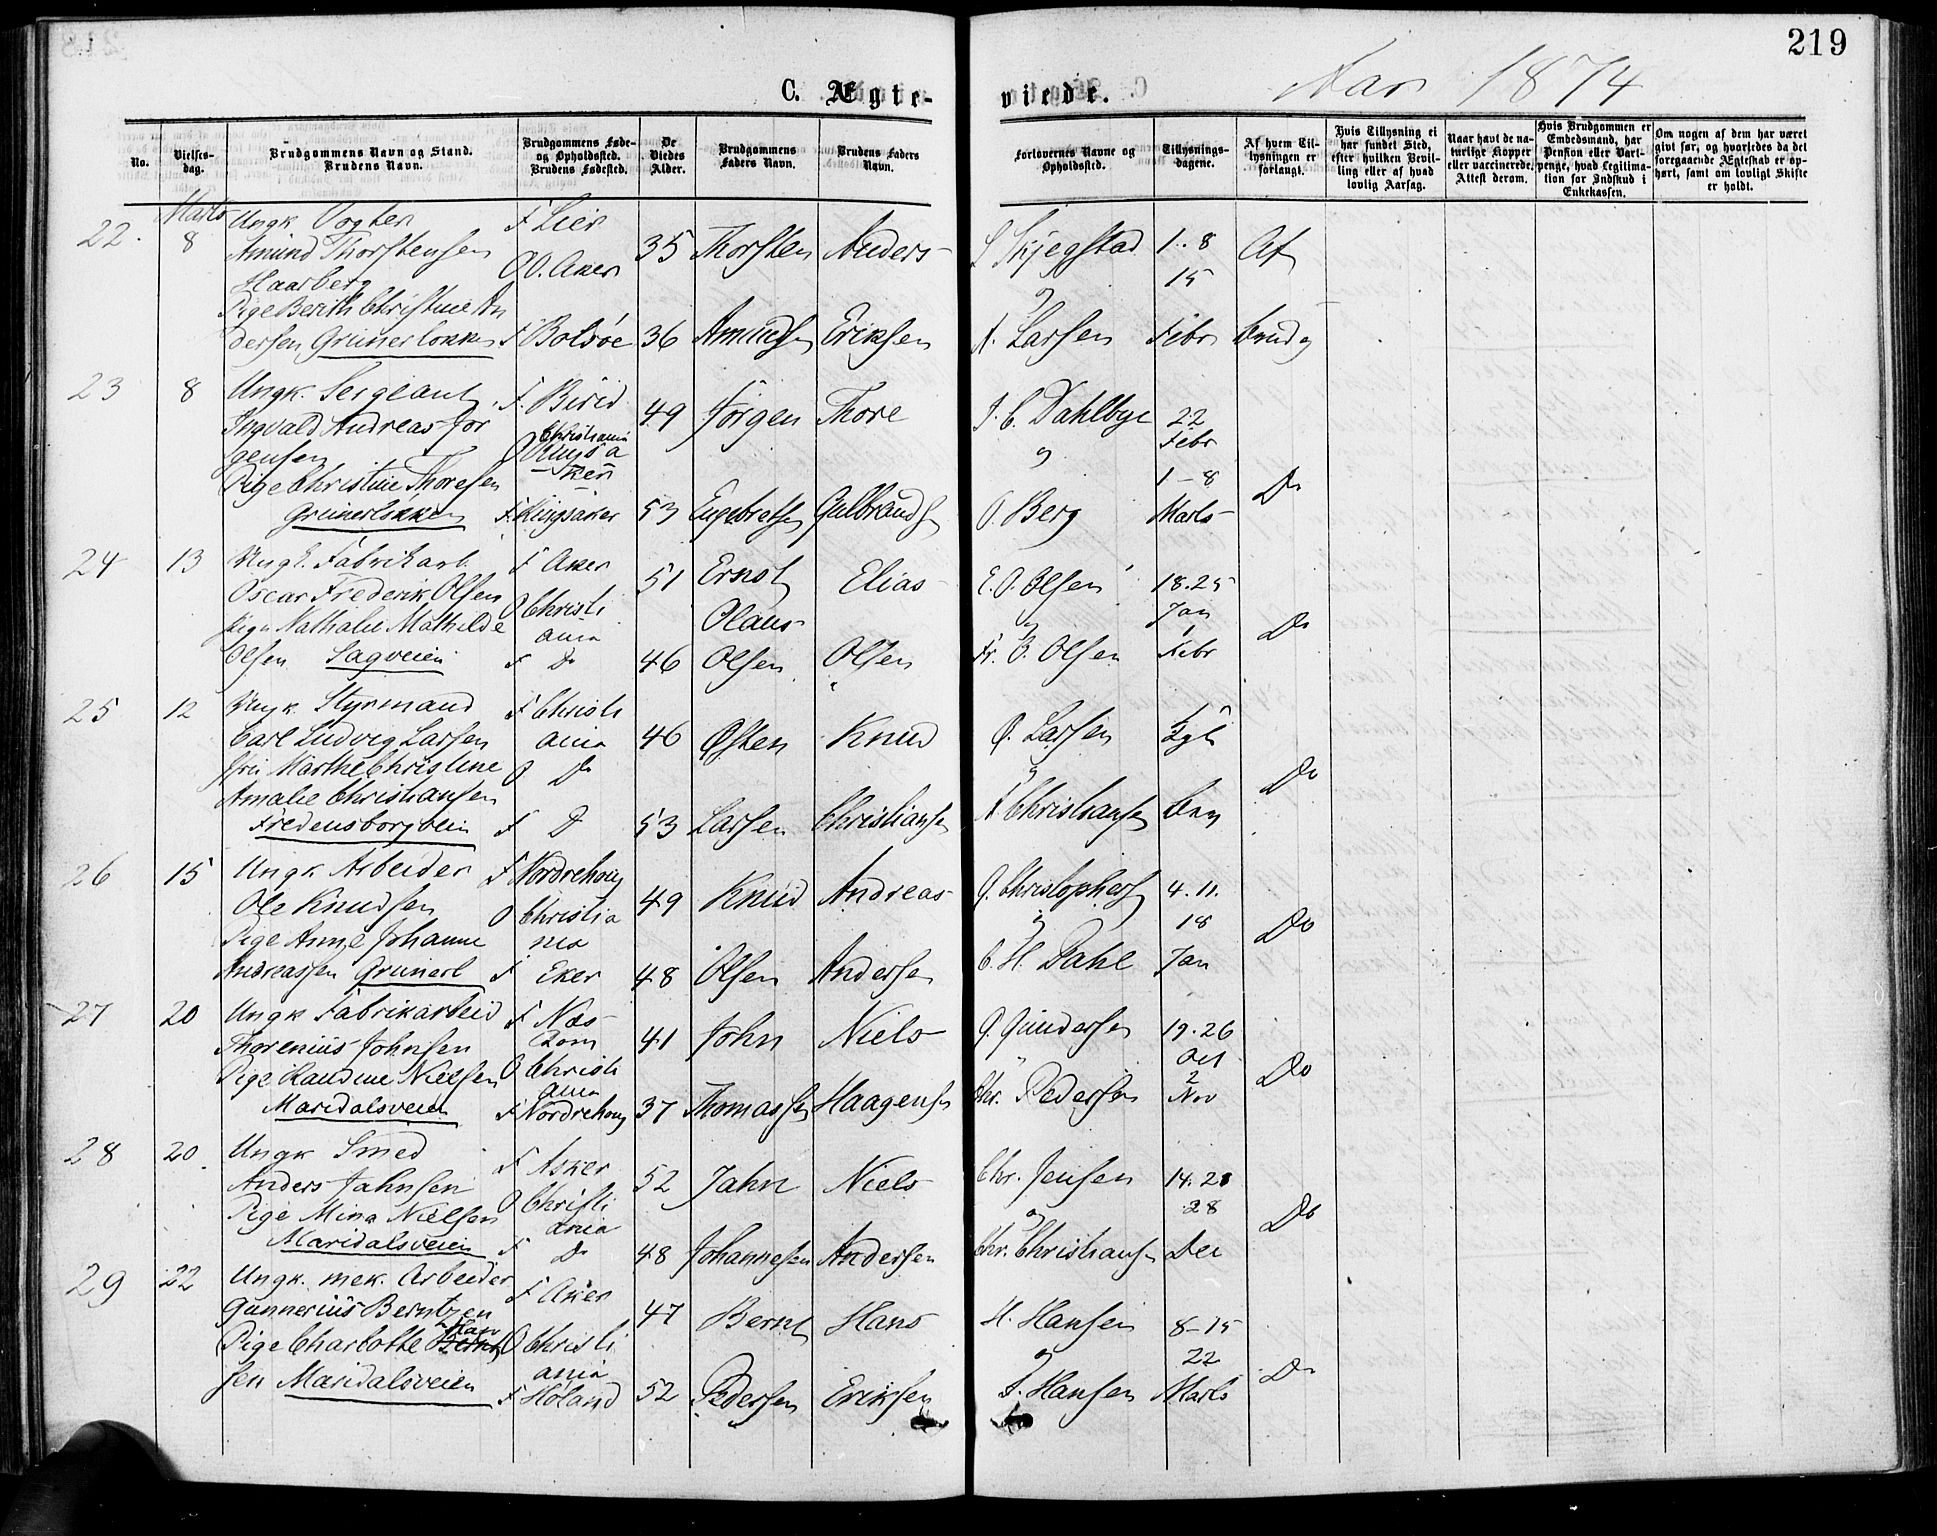 219
Aar 1874
C. Ægte-
viede.
No.
Vielses-
dag.
Brudgommens Navn og Stand.
Brudens Navn.
Brudgommens Føde-
og Opholdssted.
Brudens Fødested.
De
Viedes
Alder.
Brudgommens
Faders Navn.
Brudens Faders
Navn.
Forlovernes Navne og
Opholdssted.
Tillysnings-
dagene.
Af hvem Til-
lysningen er
forlangt.
Hvis Tillysning ei
har fundet Sted,
efter hvilken Bevil-
ling eller af hvad
lovlig Aarsag.
Naar havt de na-
turlige Kopper
eller vaccinerede.
Attest derom.
Hvis Brudgommen er
Embedsmand, har
Pension eller Vart-
penge, hvad Legitima-
tion for Indskud i
Enkekassen.
Om nogen af dem har været
givt før, og hvorledes da det
foregaaende Ægteskab er op-
hørt, samt om lovligt Skifte
er holdt.
22. Marts 8
Ungk. Vogter
Amund Thorstensen
Haarberg
Pige Berith Christine An
dersen Grünerløkken
F Lier
O O. Aker
F Bolsøe
35 Thorsten Anders-
36 Amundsen Eriksen
L Skjegstad
og
A. Larsen
1. 8
15
Febr
Af
Brudg
23 8
Ungk. Sergeant
Ingvald Andreas Jør
gensen
Pige Christine Thoresen
Grünerløkken
F. Birid
Christiania
O Ringsa
ker
F. Ringsaker
49 Jørgen Thore
53 Engebretsen Gulbrandsen
J. C. Dahlbye
og
O. Berg
22
Febr
1-8
Marts
Do
24 13
Ungk. Fabrikarb.
Oscar Frederik Olsen
Pige Nathalie Mathilde
Olsen Sagveien
F Aker
O Christi
ania
F Do
51 Ernst Elias
Olaus
46 Olsen Olsen
E. O. Olsen
og
Fr. O. Olsen
18. 25
Jan
1
Febr
Do
25 12
Ungk. Styrmand
Carl Ludvig Larsen
Marthe Christine
Amalie Christiansen
Fredensborgvein
F Christi
ania
O Do
F D
46 Østen Knud
53 Larsen Christiansen
Ø. Larsen
og
A Christiansen
Do
26 15
Ungk Arbeider
Ole Knudsen
Pige Anne Johanne
Andreassen Grünerl
F Nordrehoug
O Christia
nia
F Eker
49 Knud Andreas
48 Olsen Andersen
Christophersen
og
C. H. Dahl
4. 11.
18
Jan
Do
27 20
Ungk Fabrikarbeid
Thorenius Johnsen
Pige Randine Nielsen
Maridalsveien
F Næs
Rom
O Christi
ania
F Nordrehoug
41 John Niels
37 Thomassen Haagensen
G. Gundersen
"
Chr. Pedersen
19. 26
Oct
2
Nov
Do
28 20.
Ungk Smed
Anders Jahnsen
Pige Mina Nielsen
Maridalsveien
F Asker
O Christi
ania
F Do
52 Jahn Niels
48 Johannesen Andersen
Chr. Jensen
og
Chr. Christiansen
14. 21
28
Dec
Do
29 22
Ungk. mek. Arbeider
Gunnerius Berntzen
Han
Pige Charlotte Bernt
sen Maridalsveien
F Aker
O Christi
ania
F Høland
47 Bernt Hans
52 Pedersen Eriksen
H. Hansen
og
A. Hansen
8-15
22
Marts
Do